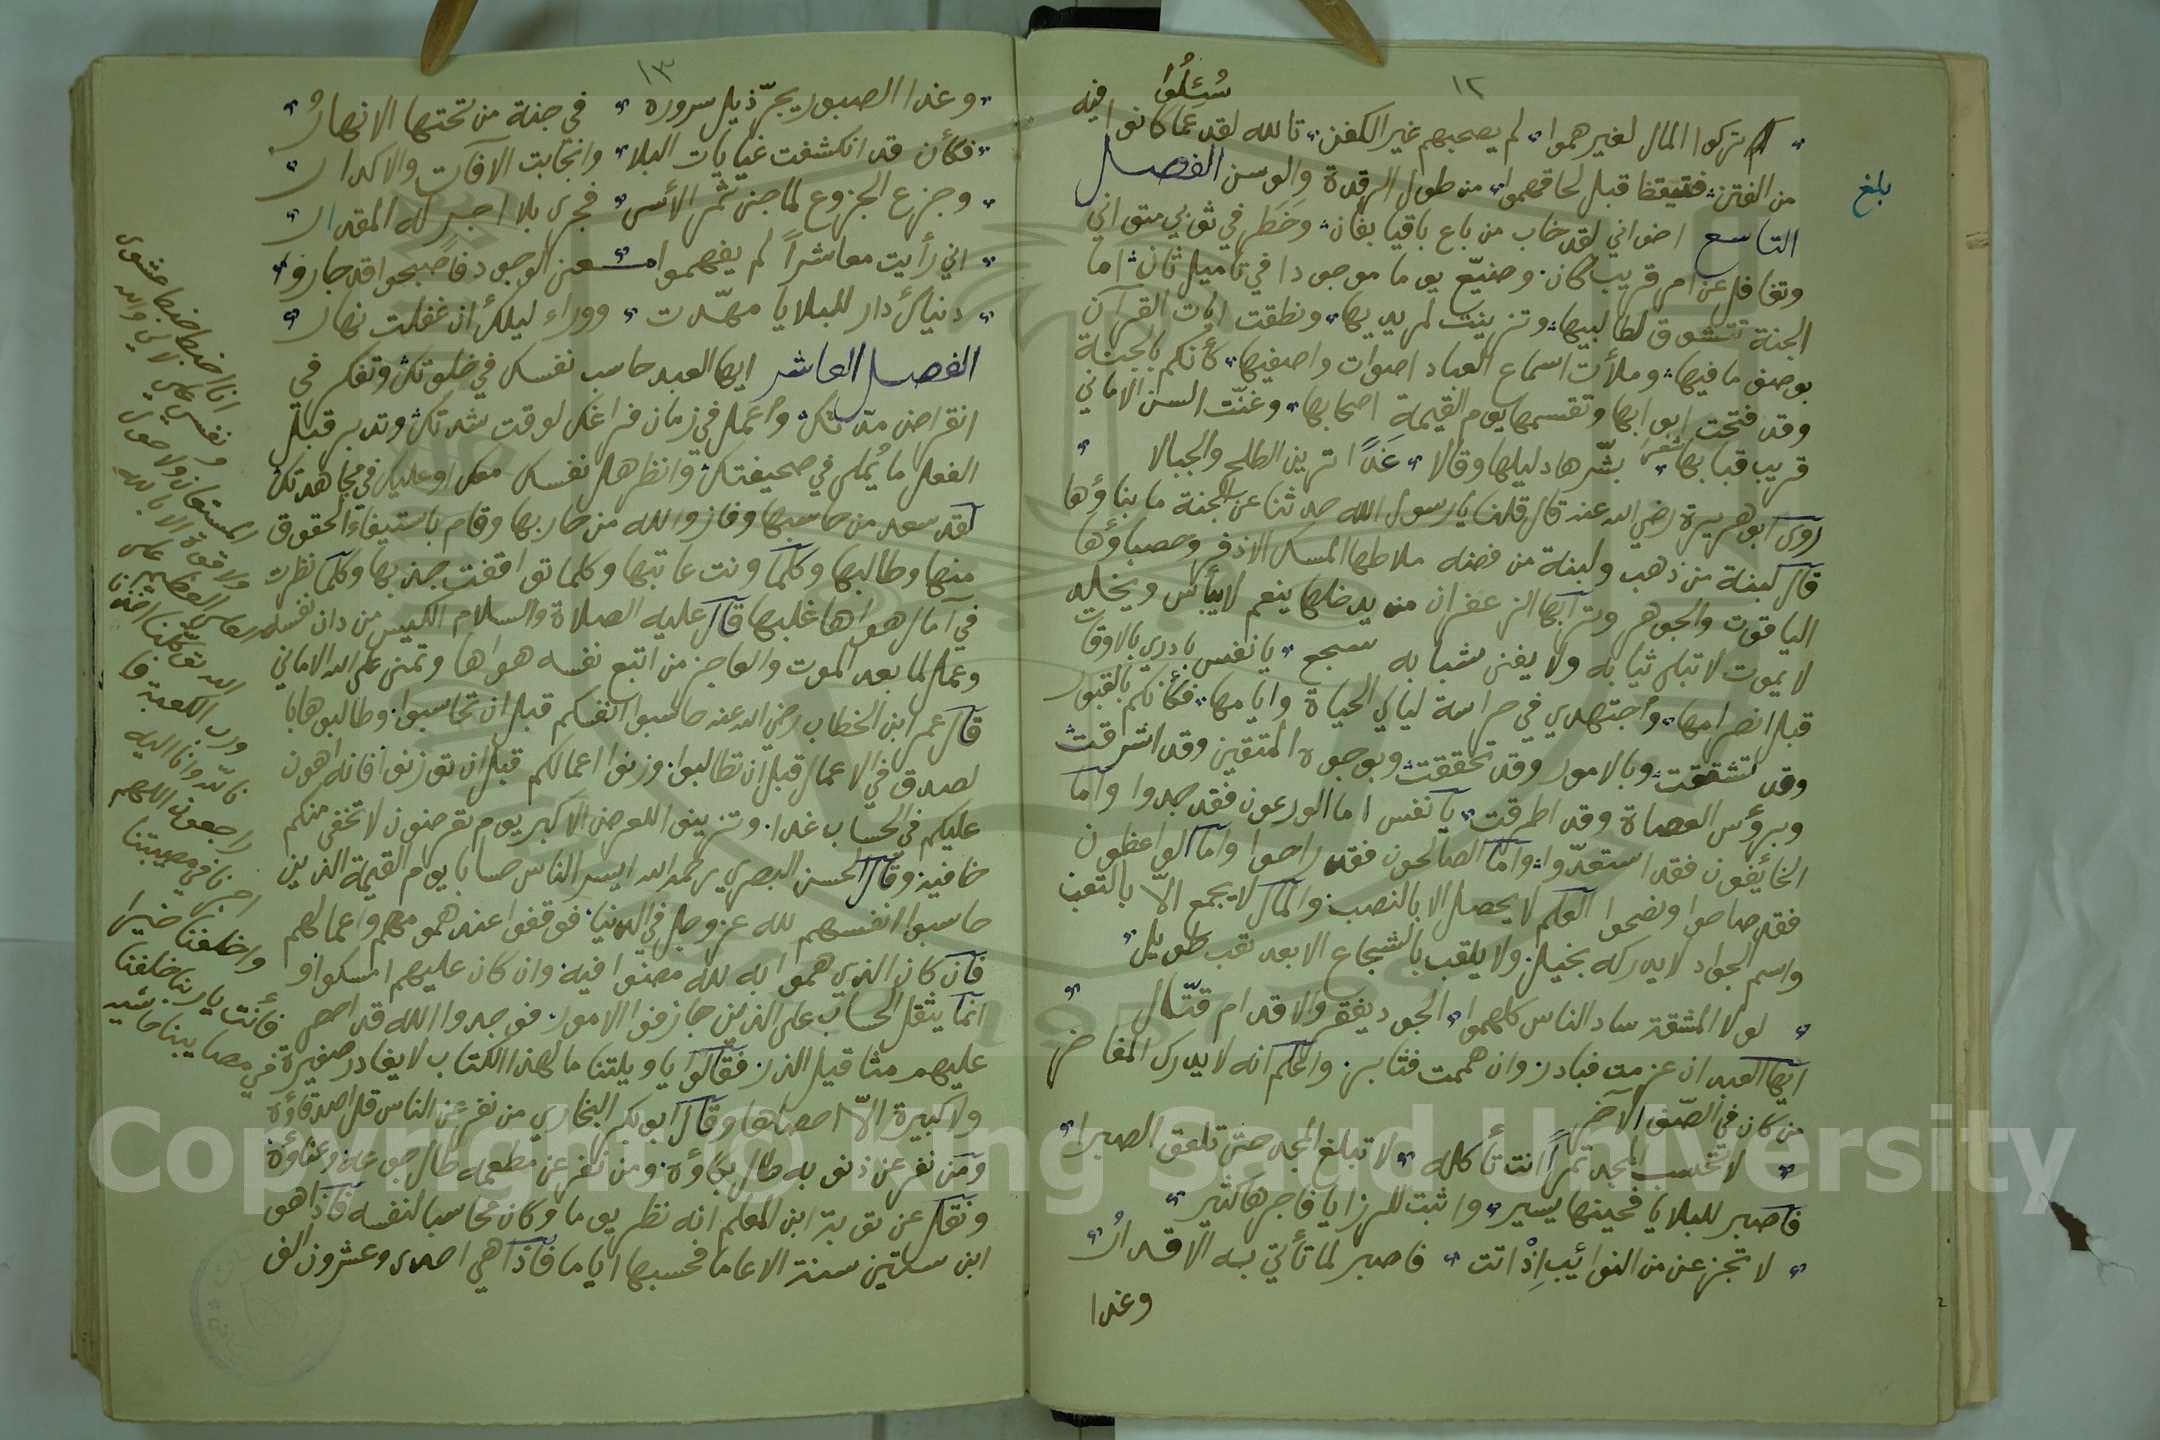 ١٢
سُئِلُوا
تركوا المال لغيرهموا لم يصحبهم غير الكفن تالله لقد عما كانوا فيه
من الفتن فتيقظا قبل لحاقهموا من طول الرقدة والوسن الفصل
بلغ
التاسع اخواني لقد خاب من باع باقيا بفان وخطر في ثوبي متواني
وتغافل عن امر قريب كان وضيّع يوما موجودا في تاميل ثان اما
الجنة تتشوق لطالبيها وتزينت لمريديها ونطقت ايات القرآن
بوصف ما فيها وملأت اسماع العباد اصوات واصفيها كأنكم بالجنة
وقد فتحت ابوابها وتقسمها يوم القيمة اصحابها وغنّت السن الاماني
قريب قبابها شعر بشّرها دليلها وقالا غدًا ترين الطلح والجبالا
روى ابو هريرة رضي الله عنه قال قلنا يا رسول الله حدثنا عن الجنة ما بناؤها
قال لبنة من ذهب ولبنة من فضه ملاطها المسك الاذفر وحصباؤها
الياقوت والجوهر وترابها الزعفران من يدخلها ينعم لا ييأس ويخلد
لا يموت لا تبلى ثيابه ولا يفنى شبابه سجع يا نفس بادري بالاوقات
قبل انصرامها واجتهدي في حراسة ليالي الحياة وايامها فكأنكم بالقبور
وقد تشققت وبالامور وقد تحققت وبوجوه المتقين وقد اشرقت
وبرؤس العصاة وقد اطرقت يا نفس اما الورعون فقد جدوا واما
الخائفون فقد استعدّوا واما الصالحون فقد راحوا واما الواعظون
فقد صاحوا ونصحوا العلم لا يحصل الا بالنصب والمال لا يجمع الاّ بالتعب
واسم الجواد لا يدركه بخيل ولا يلقب بالشجاع الا بعد تعب طويل
لولا المشقة ساد الناس كلهموا الجود يفقر والاقدام قتّال
ايها العبد ان عزمت فبادر وان هممت فثابر واعلم انه لا يدرك المفاخر
من كان في الصّف الآخر
لا تحسب المجد تمراً انت تأكله لا تبلغ المجد حتى تلعق الصبرا
فاصبر للبلايا فحينها يسير واثبت للرزايا فاجرها كثير
لا تجزعن من النوائب اذْ اتت فاصبر لما تأتي به الاقدارُ
وغدا
١٣
وغدا الصبور يجرّ ذيل سروره في جنة من تحتها الانهارُ
فكأن قد انكشفت غيابات البلا وانجابت الآفات والاكدار
وجزع الجزوع لما جنى ثمر الأسى فجرى بلا اجر له المقدار
اني رأيت معاشراً لم يفهموا معنى الوجود فاصبحوا قد جاروا
دنياك دار للبلايا مهّدت ووراء ليلك ان غفلت نهار
الفصل العاشر ايها العبد حاسب نفسك في خلوتك وتفكر في
انقراض مدتك واعمل في زمان فراغك لوقت شدتك وتدبر قبل
الفعل ما يُملى في صحيفتك وانظر هل نفسك معك او عليك في مجاهدتك
لقد سعد من حاسبها وفاز والله من حاربها وقام باستيفاء الحقوق
منها وطالبها وكلما ونت عاتبها وكلما تواقفت جذبها وكلما نظرت
في آمال هواها غلبها قال عليه الصلاة والسلام الكيس من دان نفسه
وعمل لما بعد الموت والعاجز من اتبع نفسه هواها وتمنى على الله الاماني
قال عمر ابن الخطاب رضي الله عنه حاسبوا انفسكم قبل ان تحاسبوا وطالبوها با
لصدق في الاعمال قبل ان تطالبوا وزنوا اعمالكم قبل ان توزنوا فانه اهون
عليكم في الحساب غدا وتزينوا للعرض الاكبر يوم تعرضون لا تخفى منكم
خافية وقال الحسن البصري رحمه الله ايسر الناس حسابا يوم القيمة الذين
حاسبوا انفسهم لله عز وجل في الدنيا فوقفوا عند همومهم واعمالهم
فان كان الذي هموا به لله مضوا فيه وان كان عليهم امسكوا و
انما يثقل الحساب على الذين جازفوا الامور فوجدوا الله قد احصى
عليهم مثاقيل الذر فقالوا يا ويلتنا ما لهذا الكتاب لا يغادر صغيرة
ولا كبيرة الاّ احصاها وقال ابو بكر البخاري من نفر عن الناس قل اصدقاؤه
ومن نفر عن ذنوبه طال بكاؤه ومن نفر عن مطعمه طال جوعه وعناؤه
ونقل عن توبة ابن المعلم انه نظر يوما وكان محاسبا لنفسه فاذا هو
ابن ستين سنة الا عاما فحسبها اياما فاذا هي احدى وعشرون الف
ونفسي على
المستعان ولا حول
ولا قوة الا بالله
العلي العظيم على
الله توكلنا
ورب الكعبة فا
نا لله وانا اليه
راجعون اللهم
اجرنا في مصيبتنا
واخلفنا خيرا
فأنت يا ربنا خلفنا
في مصايبنا
Copyright © King Saud University